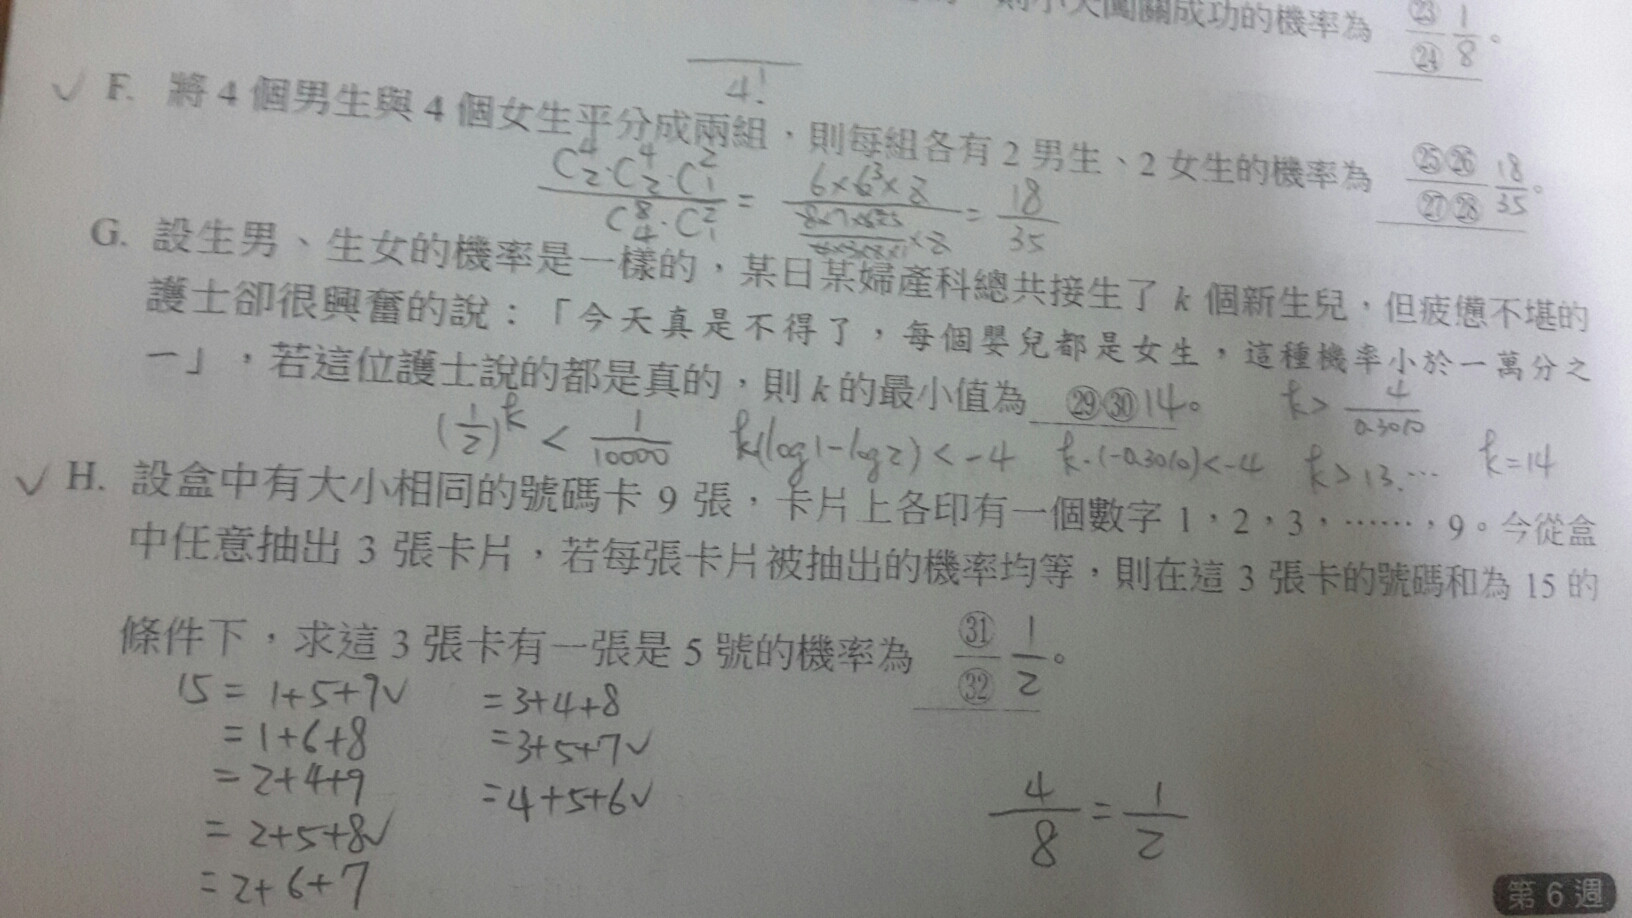 則小天闖關成功的機率為 ㉓/㉔ 1/8。
4!
✓ F. 將 4 個男生與 4 個女生平分成兩組，則每組各有 2 男生、2 女生的機率為 ㉕㉖/㉗㉘ 18/35。
C⁴₂·C⁴₂·C²₁ / C⁸₄·C²₁ = 6×6³×2 / = 18/35
G. 設生男、生女的機率是一樣的，某日某婦產科總共接生了 k 個新生兒，但疲憊不堪的
護士卻很興奮的說：「今天真是不得了，每個嬰兒都是女生，這種機率小於一萬分之
一」，若這位護士說的都是真的，則 k 的最小值為 ㉙㉚14。 k> 4/0.3010
(1/2)^k < 1/10000 k(log1-log2)<-4 k·(-0.3010)<-4 k>13.… k=14
✓ H. 設盒中有大小相同的號碼卡 9 張，卡片上各印有一個數字 1，2，3，……，9。今從盒
中任意抽出 3 張卡片，若每張卡片被抽出的機率均等，則在這 3 張卡的號碼和為 15 的
條件下，求這 3 張卡有一張是 5 號的機率為 ㉛/㉜ 1/2。
15 = 1+5+9✓ =3+4+8
=1+6+8 =3+5+7✓
=2+4+9 =4+5+6✓
=2+5+8✓ 4/8=1/2
=2+6+7
第 6 週